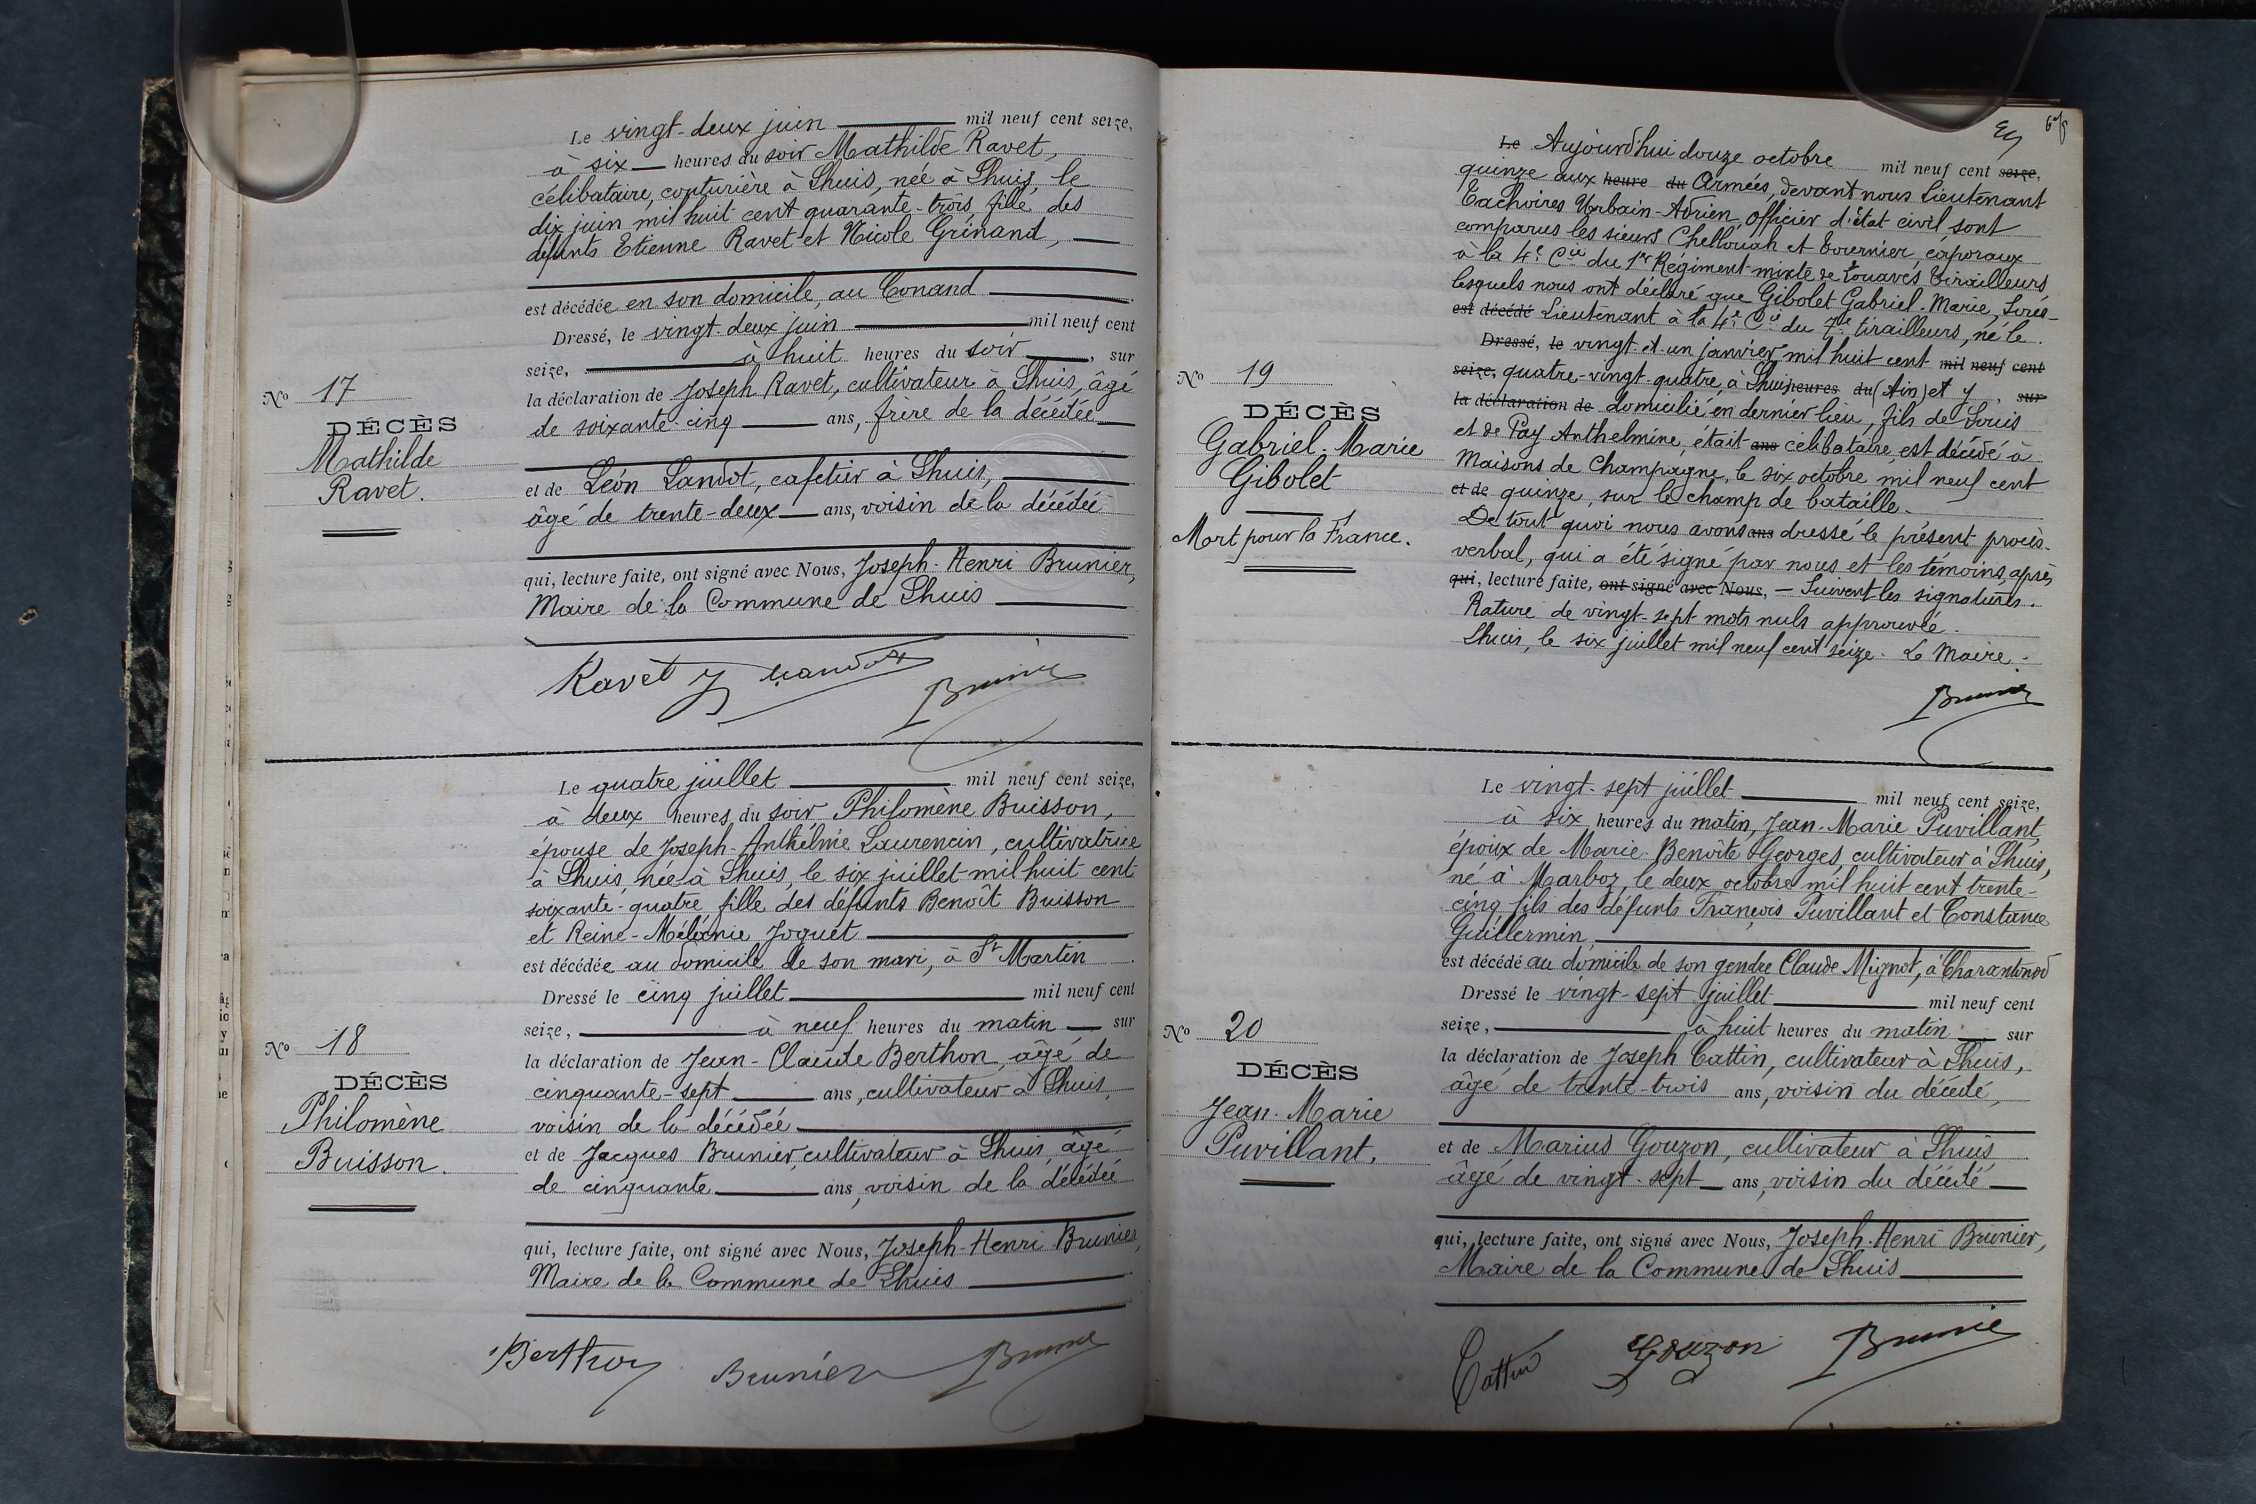 Le vingt-deux juin mil neuf cent seize,
à six heures du soir Mathilde Ravet,
célibataire, couturière à Lhuis, née à Lhuis, le
dix juin mil huit cent quarante-trois, fille des
défunts Etienne Ravet et Nicole Grinand,
est décédée en son domicile, au Conand
Dressé, le vingt-deux juin mil neuf cent
seize, à huit heures du soir, sur
No 17
la déclaration de Joseph Ravet, cultivateur à Lhuis, âgé
DÉCÈS
de soixante-cinq ans, frère de la décédée
Mathilde
Ravet.
et de Léon Landot, cafetier à Lhuis,
âgé de trente-deux ans, voisin de la décédée
qui, lecture faite, ont signé avec Nous, Joseph-Henri Brunier,
Maire de la Commune de Lhuis
Ravet J Landot Brunier
Le quatre juillet mil neuf cent seize,
à deux heures du soir Philomène Buisson,
épouse de Joseph-Anthelmie Laurencin, cultivatrice
à Lhuis, née à Lhuis, le six juillet mil huit cent
soixante-quatre, fille des défunts Benoît Buisson
et Reine-Mélanie Joguet
est décédée au domicile de son mari, à St Martin
Dressé le cinq juillet mil neuf cent
seize, à neuf heures du matin sur
No 18
la déclaration de Jean-Claude Berthon, âgé de
DÉCÈS
cinquante-sept ans, cultivateur à Lhuis,
Philomène
voisin de la décédée
Buisson.
et de Jacques Brunier, cultivateur à Lhuis, âgé
de cinquante ans, voisin de la décédée
qui, lecture faite, ont signé avec Nous, Joseph-Henri Brunier,
Maire de la Commune de Lhuis
Berthon Brunier Brunier
Le Aujourd'hui douze octobre mil neuf cent seize,
quinze aux heure du Armées, devant nous Lieutenant
Eachoires Urbain-Adrien, officier d'état civil sont
comparus les sieurs Chellouah et Tournier, caporaux
à la 4e Cie du 1er Régiment mixte de zouaves tirailleurs
lesquels nous ont déclaré que Gibolet Gabriel-Marie, Sous-
est décédé Lieutenant à la 4e Cie du 7e tirailleurs, né le
Dressé, le vingt-et-un janvier mil huit cent mil neuf cent
seize, quatre-vingt-quatre, à Lhuis heures du (Ain) et y, sur
No 19
la déclaration de domicilié en dernier lieu, fils de Louis
DÉCÈS
et de Pay Anthelmine, était ans célibataire, est décédé à
Gabriel-Marie
Maisons de Champagne, le six octobre mil neuf cent
Gibolet
et de quinze, sur le champ de bataille.
De tout quoi nous avons ans dressé le présent procès-
Mort pour la France.
verbal, qui a été signé par nous et les témoins, après
qui, lecture faite, ont signé avec Nous, — Suivent les signatures.
Rature de vingt-sept mots nuls approuvée.
Lhuis, le six juillet mil neuf cent seize. Le Maire.
Brunier
Le vingt-sept juillet mil neuf cent seize,
à six heures du matin, Jean-Marie Puvillant,
époux de Marie-Benoîte Georges, cultivateur à Lhuis,
né à Marboz, le deux octobre mil huit cent trente-
cinq, fils des défunts François Puvillant et Constance
Guillermin
est décédé au domicile de son gendre Claude Mignot, à Charantonod
Dressé le vingt-sept juillet mil neuf cent
seize, à huit heures du matin sur
No 20
la déclaration de Joseph Cattin, cultivateur à Lhuis,
DÉCÈS
âgé de trente-trois ans, voisin du décédé,
Jean-Marie
Puvillant.
et de Marius Gouzon, cultivateur à Lhuis
âgé de vingt-sept ans, voisin du décédé
qui, lecture faite, ont signé avec Nous, Joseph-Henri Brunier,
Maire de la Commune de Lhuis
Cattin Gouzon Brunier